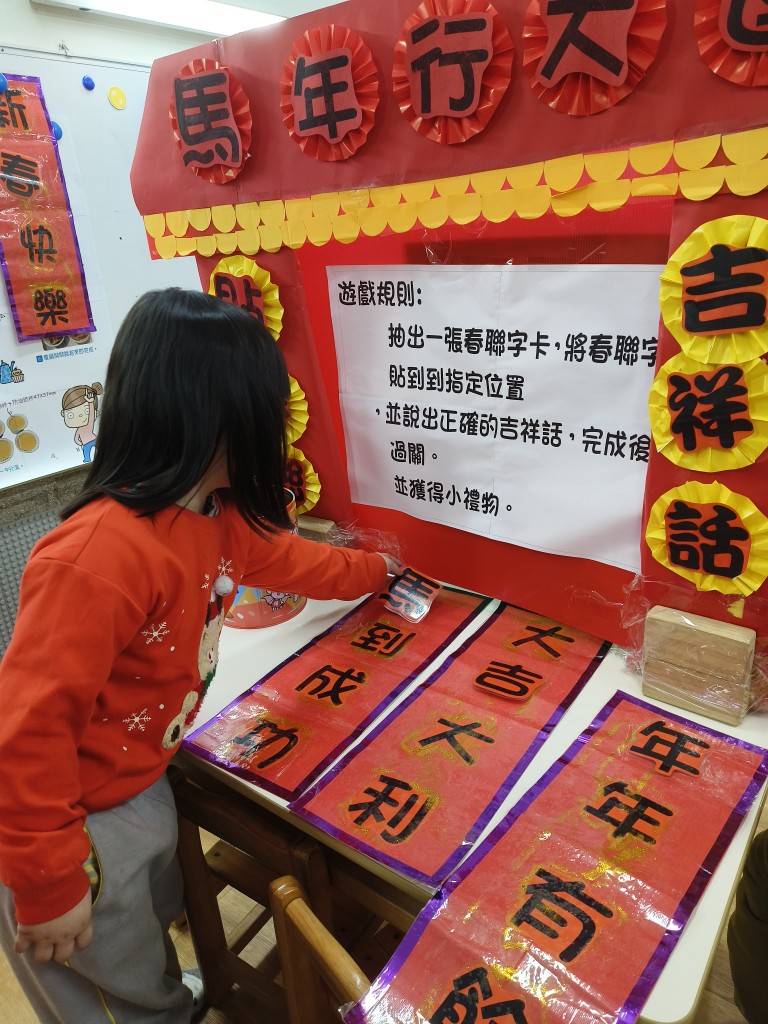 馬年行大
新春快樂
貼
吉祥話
遊戲規則：
抽出一張春聯字卡，將春聯字
貼到到指定位置
，並說出正確的吉祥話，完成後
過關。
並獲得小禮物。
馬到成功
大吉大利
年年有